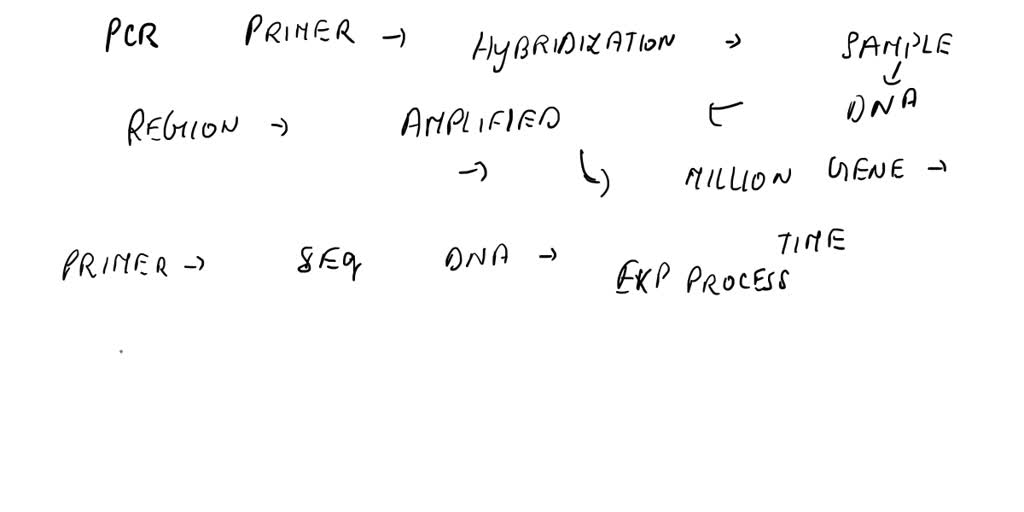 PCR PRIMER → HYBRIDIZATION → SAMPLE
↓
REGION → AMPLIFIED ← DNA
→ ↳ MILLION GENE →
TIME
PRIMER → SEq DNA → EXP PROCESS